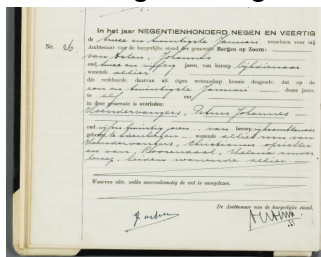 In het jaar NEGENTIENHONDERD NEGEN EN VEERTIG
de twee en twintigste Januari verscheen voor mij
Nr. 26 Ambtenaar van de burgerlijke stand der gemeente Bergen op Zoom:
van Johannes
oud twee en vijftig jaren, van beroep lijkdienaar
wonende alhier
die verklaarde, daarvan uit eigen wetenschap kennis dragende, dat op de
een en twintigste Januari dezes jaars,
te elf ure
in deze gemeente is overleden:
Petrus Johannes
oud vijf en twintig jaren, van beroep
geboren te wonende alhier zoon van
Christiaan opzichter
en van Roosendaal, Helena
beroep, beiden wonende alhier
Waarvan akte, welke overeenkomstig de wet is voorgelezen.
De Ambtenaar van de burgerlijke stand,